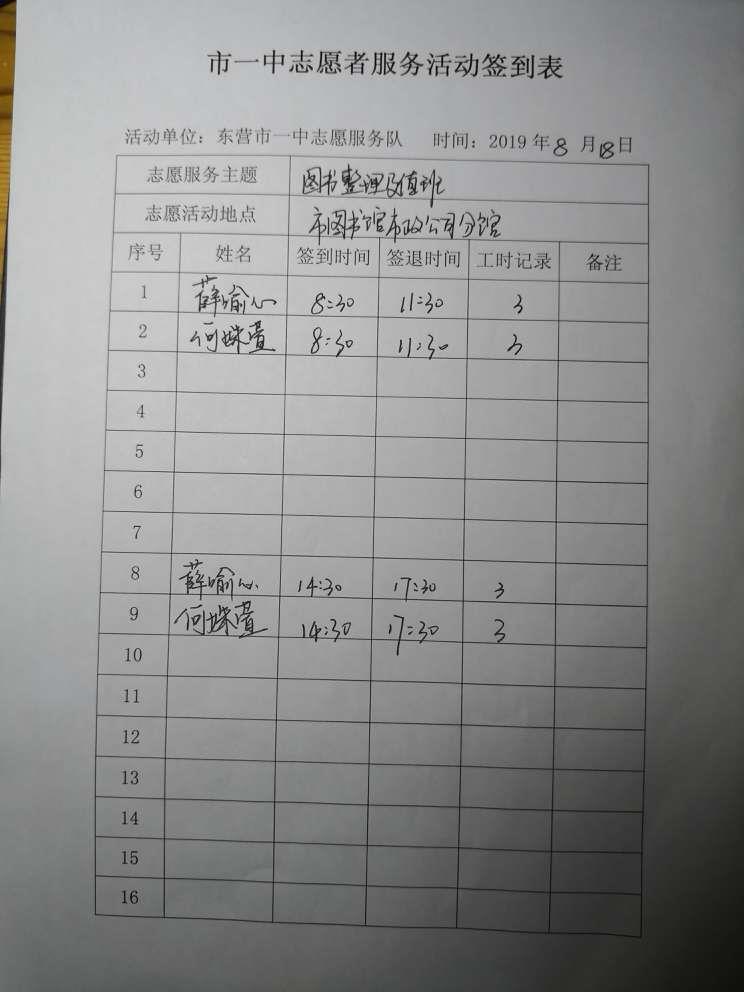 市一中志愿者服务活动签到表
活动单位：东营市一中志愿服务队 时间：2019年8月18日
志愿服务主题 图书整理及值班
志愿活动地点 市图书馆市政公司分馆
序号 姓名 签到时间 签退时间 工时记录 备注
1 薛喻心 8:30 11:30 3
2 何姝萱 8:30 11:30 3
3
4
5
6
7
8 薛喻心 14:30 17:30 3
9 何姝萱 14:30 17:30 3
10
11
12
13
14
15
16